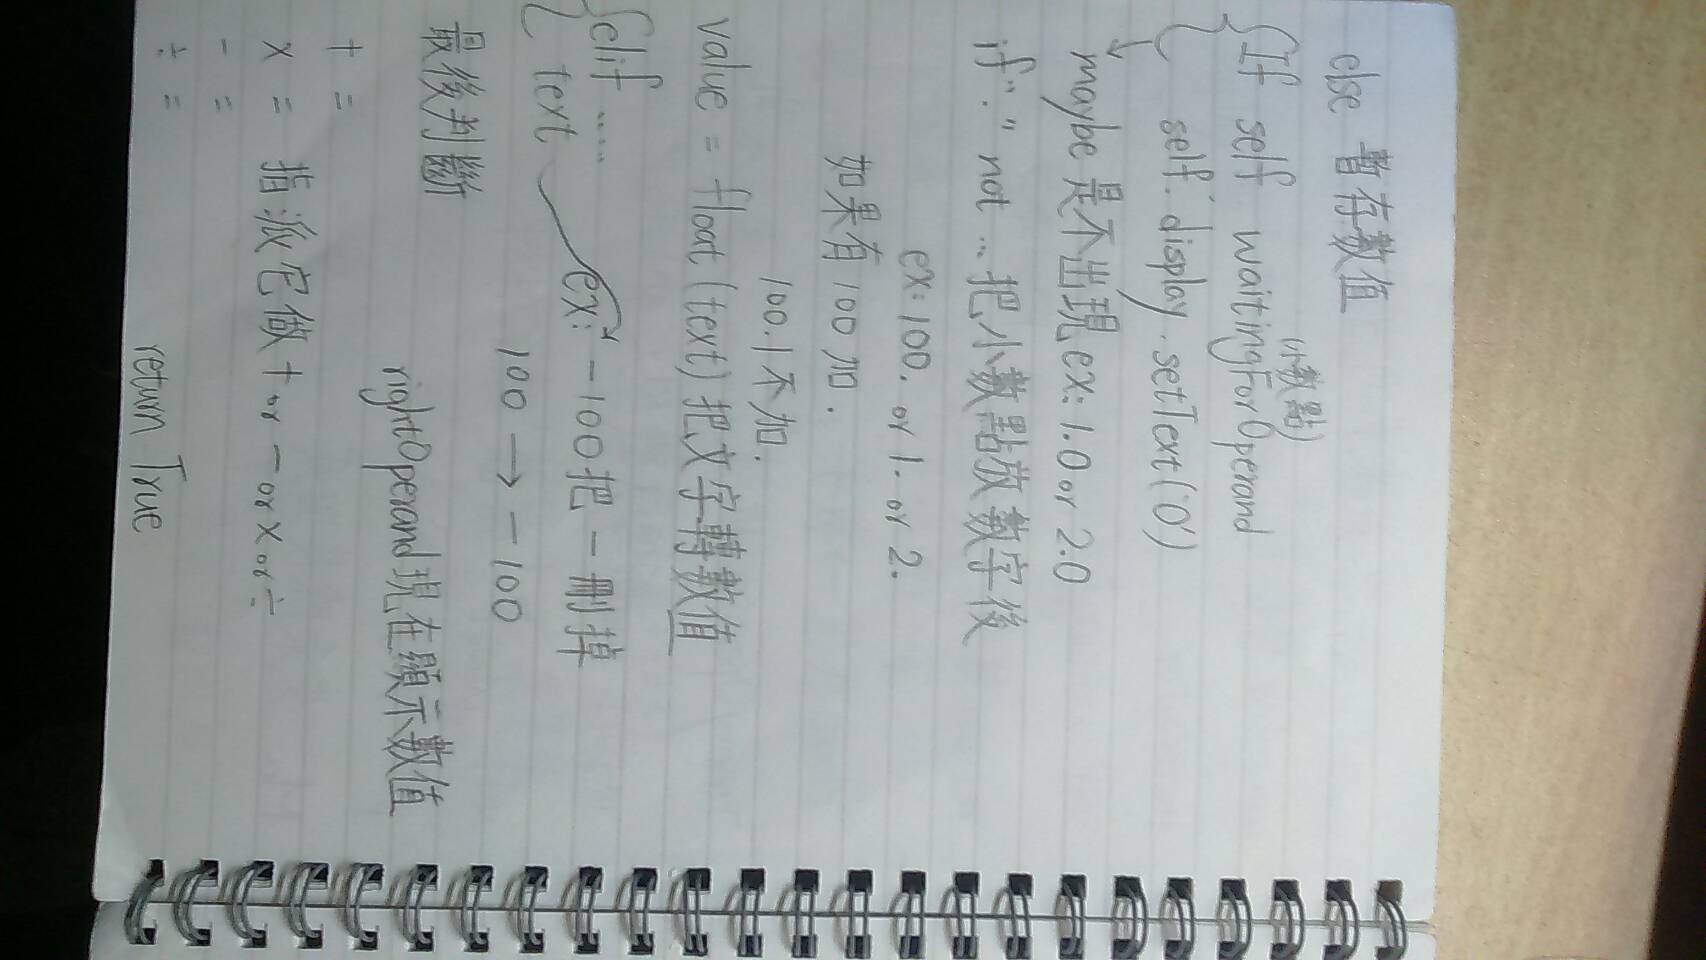 else 暫存數值
(小數點)
{If self waitingForOperand
{ self.display.setText('0')
↓
maybe 是不出現 ex: 1.0 or 2.0
if "." not ... 把小數點放數字後
ex: 100. or 1. or 2.
如果有100加.
100.1不加.
value = float(text) 把文字轉數值
{elif ..... ex: -100把-刪掉
{ text
100 → -100
最後判斷 rightOperand現在顯示數值
+ =
x = 指派它做 + or - or x or ÷
- =
÷ = return True